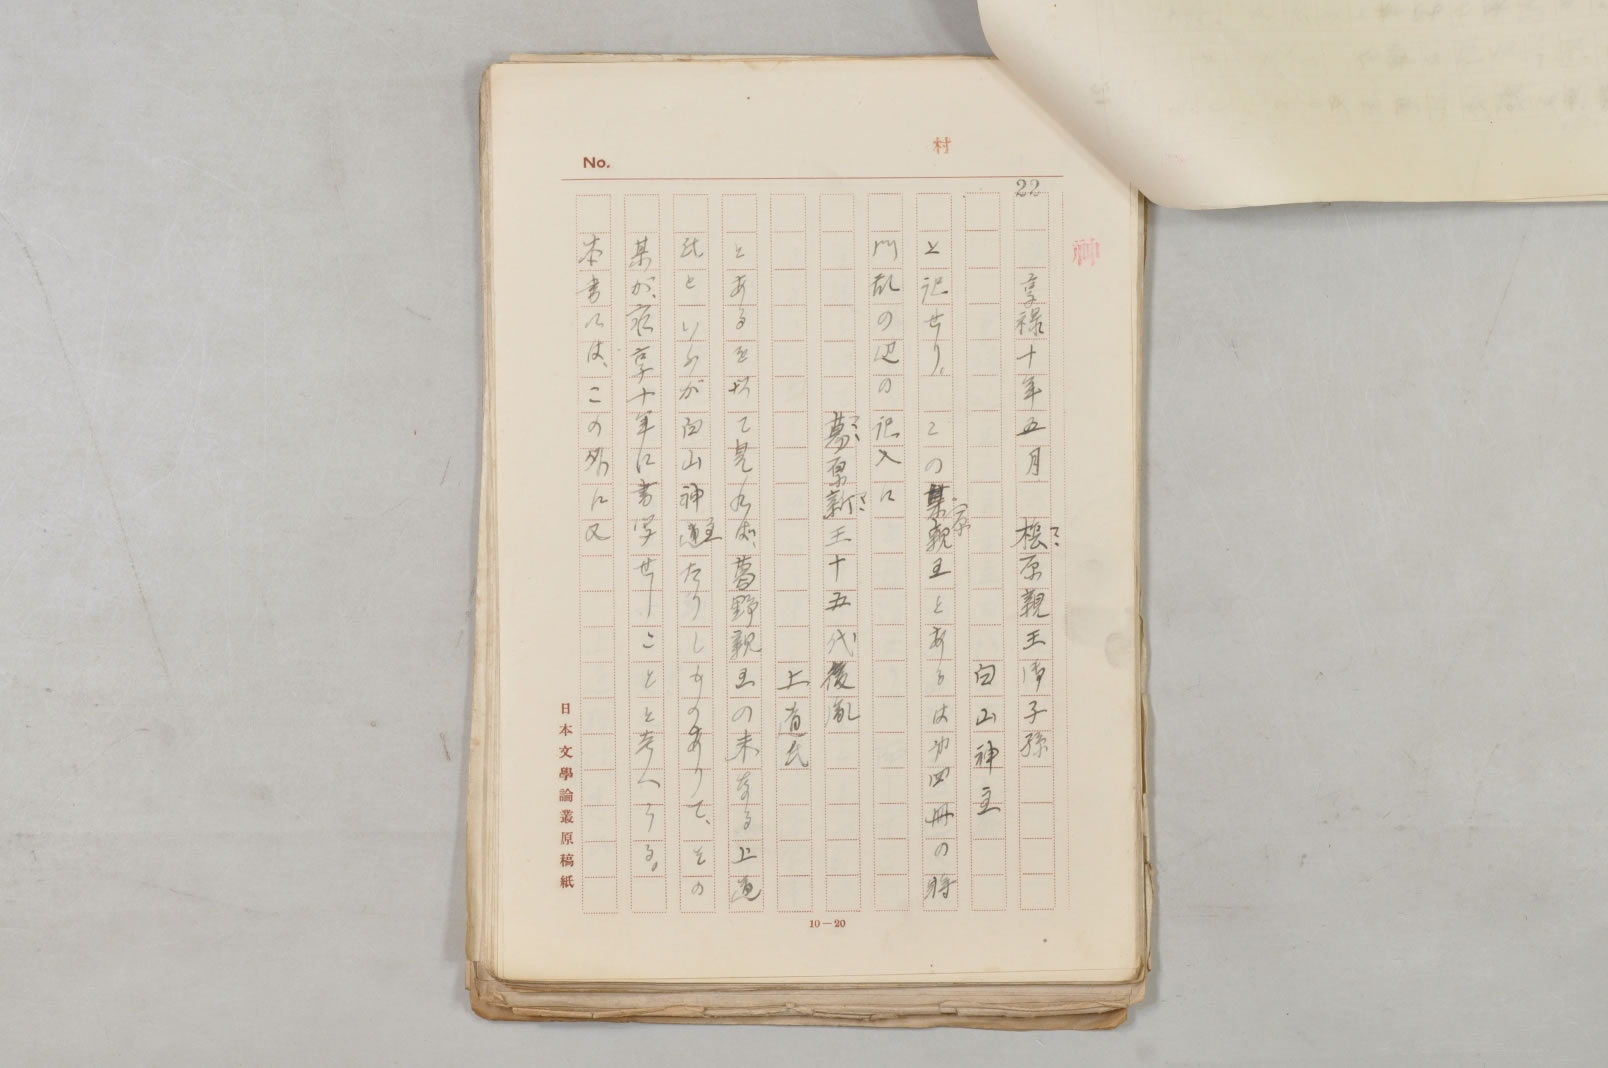 No.
村
22
享禄十年五月　桜原親王御子孫
白山神主
と記せり。この葉原親王とあるは第四册の将
門乱の処の記入に
葛原新王十五代後胤
上道氏
とあるを以て見れば、葛野親王の末なる上道
氏といふが白山神主たりしものありて、その
某が、享十年に書写せしことと考へらる。
本書には、この外に又
日本文學論叢原稿紙
10—20